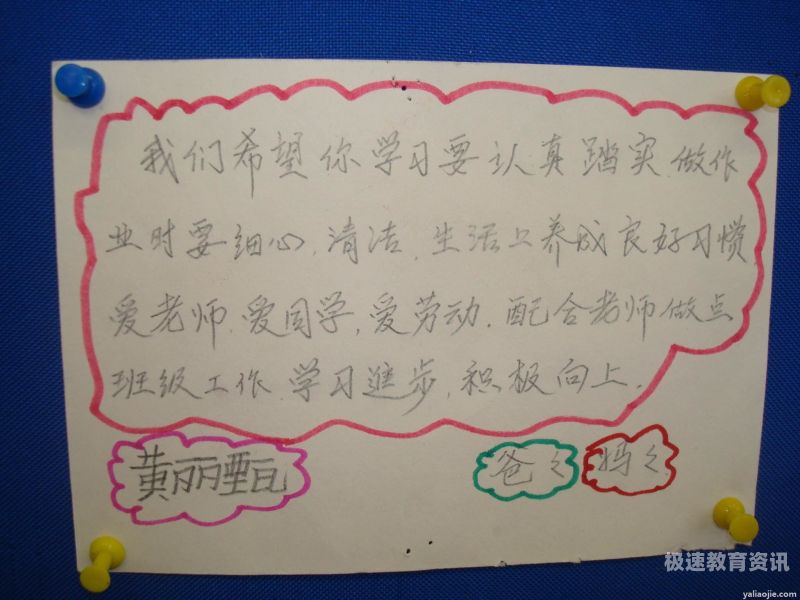 我们希望你学习要认真踏实.做作
业时要细心.清洁.生活上养成良好习惯
爱老师.爱同学,爱劳动.配合老师做点
班级工作.学习進步,积极向上.
黄丽
爸々 妈々
极速教育资讯
yaliaojie.com